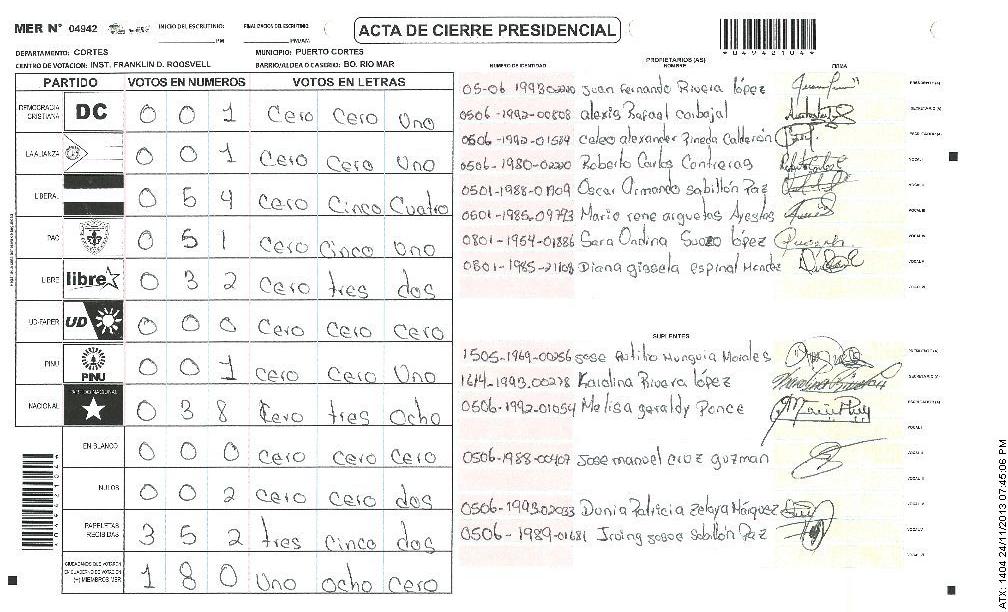 MER Nº 04942
INICIO DEL ESCRUTINIO: PM
FINALIZACION DEL ESCRUTINIO: PM/AM
ACTA DE CIERRE PRESIDENCIAL
*04942104*
DEPARTAMENTO: CORTES
MUNICIPIO: PUERTO CORTES
CENTRO DE VOTACION: INST. FRANKLIN D. ROOSVELL
BARRIO/ALDEA O CASERIO: BO. RIO MAR
PARTIDO VOTOS EN NUMEROS VOTOS EN LETRAS
DEMOCRACIA CRISTIANA DC 0 0 1 Cero Cero Uno
LA ALIANZA 0 0 1 Cero Cero Uno
LIBERAL 0 5 4 Cero Cinco Cuatro
PAC 0 5 1 Cero Cinco Uno
LIBRE libre 0 3 2 Cero tres dos
UD-FAPER UD 0 0 0 Cero Cero Cero
PINU PINU 0 0 1 Cero Cero Uno
NACIONAL PARTIDO NACIONAL 0 3 8 Cero tres Ocho
EN BLANCO 0 0 0 Cero Cero Cero
NULOS 0 0 2 Cero Cero dos
PAPELETAS RECIBIDAS 3 5 2 tres Cinco dos
CIUDADANOS QUE VOTARON EN CUADERNO DE VOTACION (+) MIEMBROS MER 1 8 0 Uno Ocho Cero
PROPIETARIOS (AS)
NUMERO DE IDENTIDAD NOMBRE FIRMA
05-06 1993 Juan Fernando Rivera lópez PRESIDENTE (A)
0506-1992-00808 alexis Rafael carbajal SECRETARIO (A)
0506-1992-01584 caleo alexander Pineda Calderón ESCRUTADOR (A)
0506-1980-02220 Roberto Carlos Contreras VOCAL I
0501-1988-01909 Oscar Armando sabillón Paz VOCAL II
0501-1985-09793 Mario rene arguetas Ayestas VOCAL III
0801-1954-01886 Sara Ondina Suazo lópez VOCAL IV
0801-1985-21108 Diana gissela espinal Mendez VOCAL V
VOCAL VI
SUPLENTES
1505-1969-00256 Jose Rutilio Munguia Morales PRESIDENTE (A)
1614-1993-00278 Karolina Rivera lópez SECRETARIO (A)
0506-1992-01054 Melisa geraldy Ponce ESCRUTADOR (A)
VOCAL I
0506-1988-00407 Jose manuel cruz guzman VOCAL II
VOCAL III
0506-1993-02033 Dunia Patricia Zelaya Márquez VOCAL IV
0506-1989-01681 Irving Josoe Sabillón Paz VOCAL V
VOCAL VI
ATX: 1404 24/11/2013 07:45:06 PM